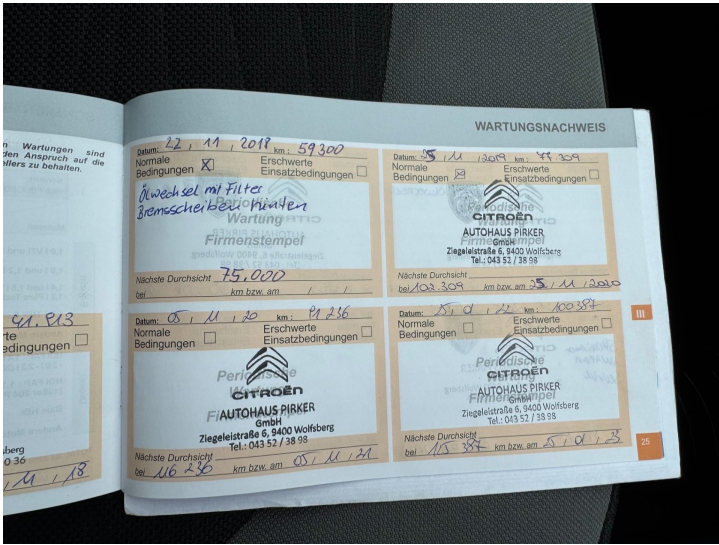 WARTUNGSNACHWEIS
n Wartungen sind
den Anspruch auf die
ellers zu behalten.
41.913
te
edingungen
sberg
0 36
11 , 18
Datum: 22 , 11 , 2018 km : 59300
Normale Bedingungen X Erschwerte Einsatzbedingungen
Ölwechsel mit Filter
Bremsscheiben hinten
Periodische
Wartung
Firmenstempel
Nächste Durchsicht 75.000
bei km bzw. am / /
Datum: 25 , 11 , 2019 km :
Normale Bedingungen X Erschwerte Einsatzbedingungen
Periodische
CITROËN
AUTOHAUS PIRKER
GmbH
Ziegeleistraße 6, 9400 Wolfsberg
Tel.: 043 52 / 38 98
Nächste Durchsicht
bei 102.309 km bzw. am 25 , 11 , 2020
Datum: 05 , 11 , 20 km : 91 236
Normale Bedingungen Erschwerte Einsatzbedingungen
CITROËN
AUTOHAUS PIRKER
GmbH
Ziegeleistraße 6, 9400 Wolfsberg
Tel.: 043 52 / 38 98
Nächste Durchsicht
bei 116 236 km bzw. am 05 , 11 , 21
Datum: km : 100 387
Normale Bedingungen Erschwerte Einsatzbedingungen
Periodische
CITROËN
AUTOHAUS PIRKER
GmbH
Ziegeleistraße 6, 9400 Wolfsberg
Tel.: 043 52 / 38 98
Nächste Durchsicht
bei 115 387 km bzw. am
III
25